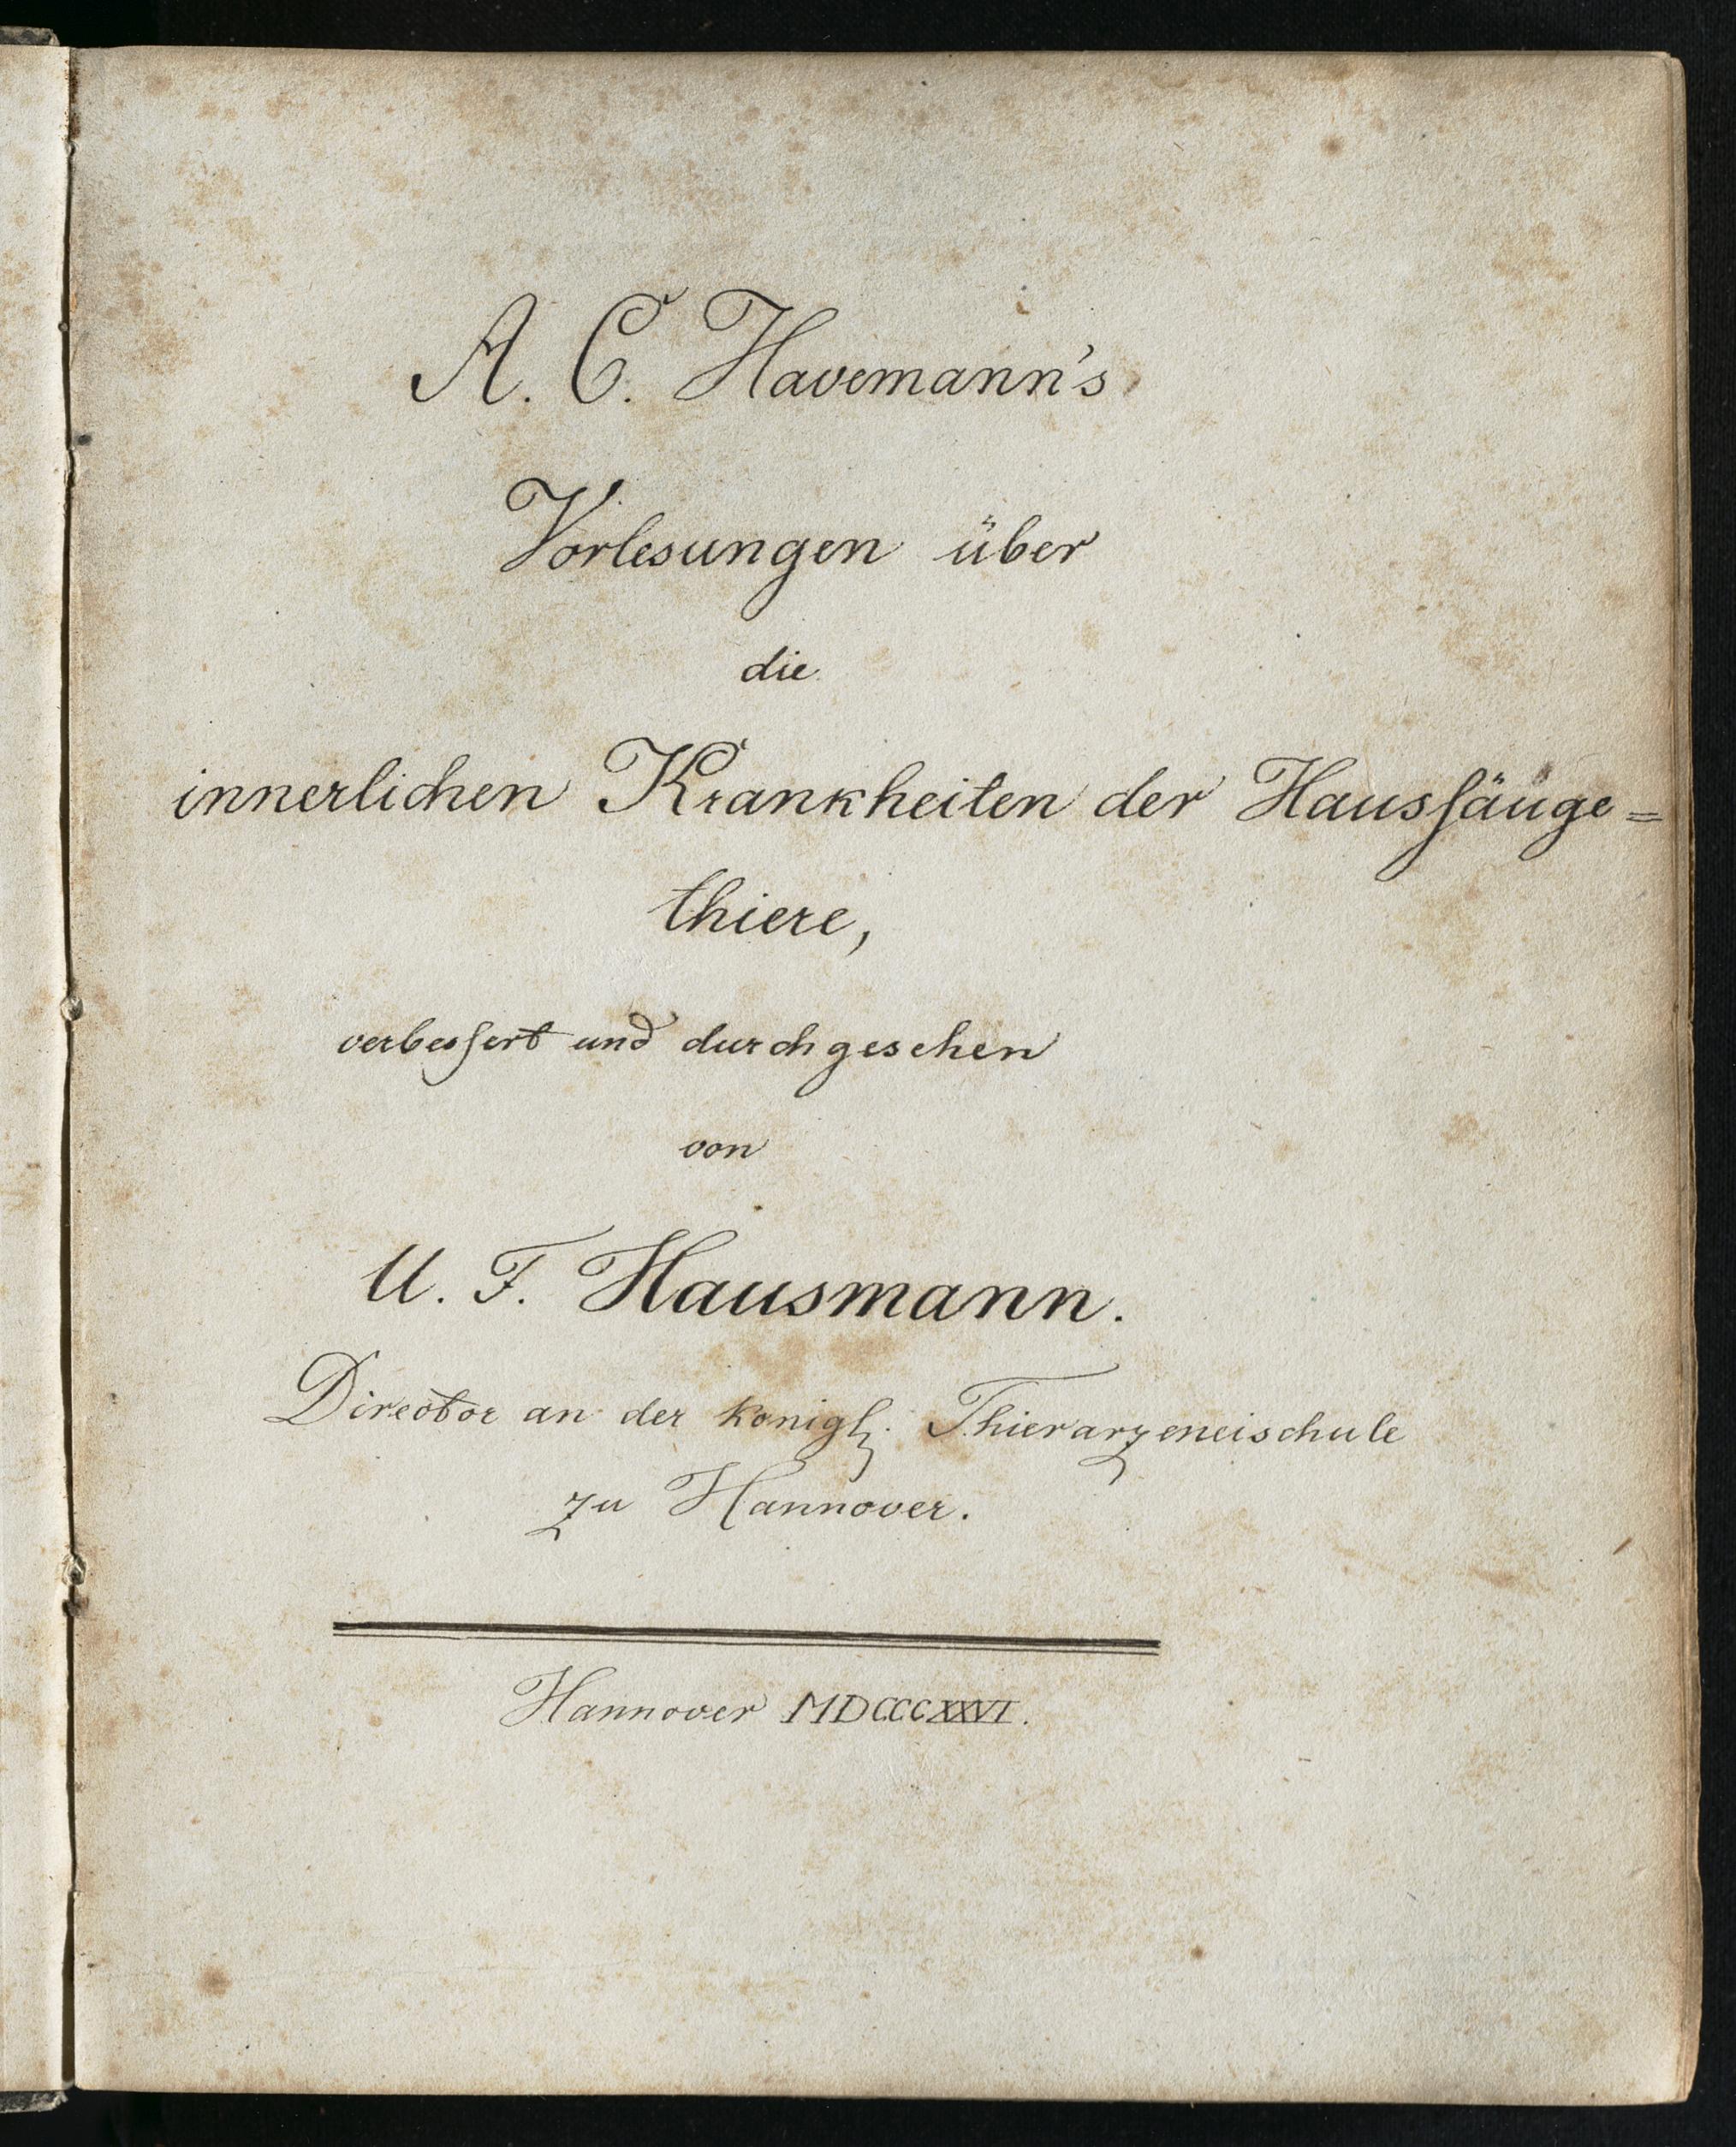 A. C. Havemann's
Vorlesungen über
die
innerlichen Krankheiten der Hausſäuge=
thiere,
verbesſert und durchgesehen
von
U. F. Hausmann.
Director an der königl. Thierarzeneischule
zu Hannover.
Hannover MDCCCXXVI.